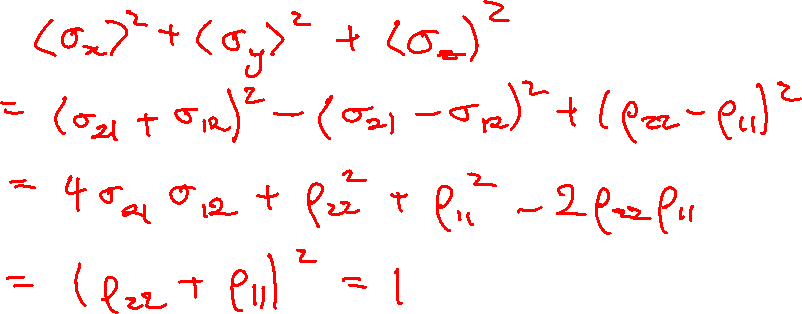 ⟨σₓ⟩² + ⟨σ_y⟩² + ⟨σ_z⟩²
= (σ₂₁ + σ₁₂)² − (σ₂₁ − σ₁₂)² + (ρ₂₂ − ρ₁₁)²
= 4σ₂₁σ₁₂ + ρ₂₂² + ρ₁₁² − 2ρ₂₂ρ₁₁
= (ρ₂₂ + ρ₁₁)² = 1